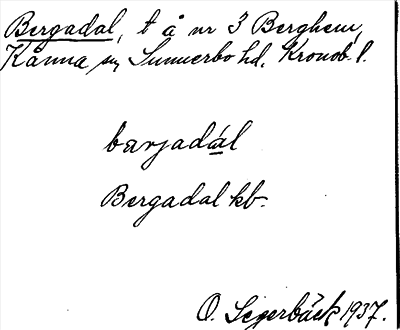 Bergadal, t å nr 3 Berghem,
Kånna sn, Sunnerbo hd. Kronob. l.
barjadál
Bergadal kb.
O. Segerbäck 1937.